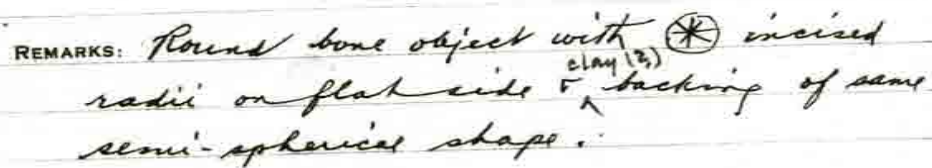 REMARKS: Round bone object with ⊛ incised
radii on flat side & clay (?) backing of same
semi-spherical shape.